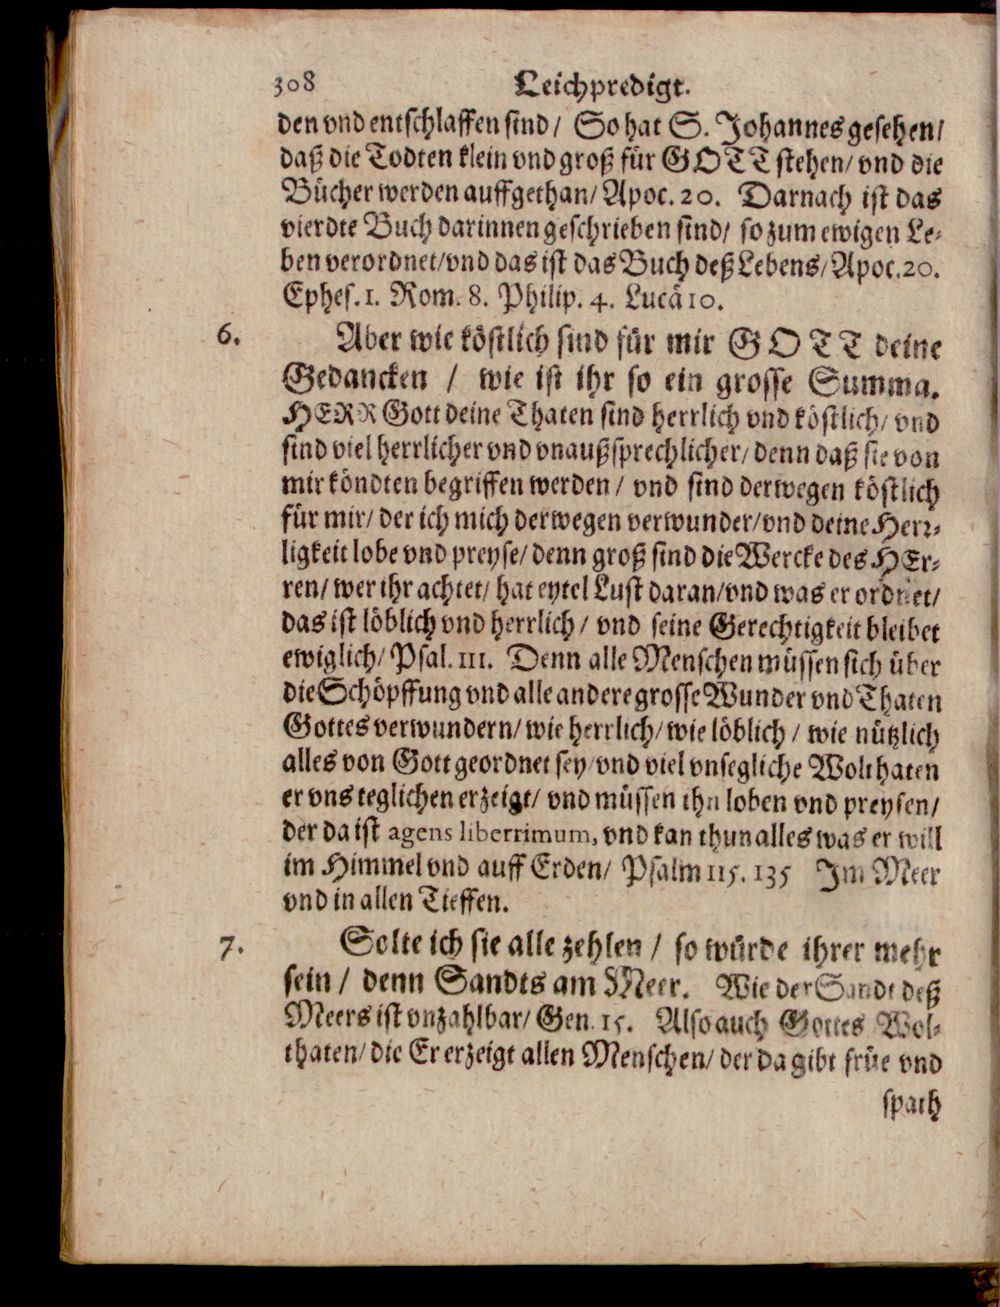 308 Leichpredigt.
den vnd entschlaffen sind/ So hat S. Johannes gesehen/
daß die Todten klein vnd groß für GOTT stehen/ vnd die
Bücher werden auffgethan/ Apoc. 20. Darnach ist das
vierdte Buch darinnen geschrieben sind/ so zum ewigen Le-
ben verordnet/ vnd das ist das Buch deß Lebens/ Apoc. 20.
Ephes. 1. Rom. 8. Philip. 4. Lucä 10.
6. Aber wie köstlich sind für mir GOTT deine
Gedancken / wie ist ihr so ein grosse Summa.
HERR Gott deine Thaten sind herrlich vnd köstlich/ vnd
sind viel herrlicher vnd vnaußsprechlicher/ denn daß sie von
mir köndten begriffen werden / vnd sind derwegen köstlich
für mir/ der ich mich derwegen verwunder/ vnd deine Herr-
ligkeit lobe vnd preyse/ denn groß sind die Wercke des HEr-
ren/ wer ihr achtet/ hat eytel Lust daran/ vnd was er ordnet/
das ist löblich vnd herrlich / vnd seine Gerechtigkeit bleibet
ewiglich/ Psal. 111. Denn alle Menschen müssen sich über
die Schöpffung vnd alle andere grosse Wunder vnd Thaten
Gottes verwundern/ wie herrlich/ wie löblich / wie nützlich
alles von Gott geordnet sey/ vnd viel vnsegliche Wolthaten
er vns teglichen erzeigt/ vnd müssen ihn loben vnd preysen/
der da ist agens liberrimum, vnd kan thun alles was er will
im Himmel vnd auff Erden/ Psalm 115. 135 Im Meer
vnd in allen Tieffen.
7. Solte ich sie alle zehlen / so würde ihrer mehr
sein / denn Sandts am Meer. Wie der Sandt deß
Meers ist vnzahlbar/ Gen. 15. Also auch Gottes Wol-
thaten/ die Er erzeigt allen Menschen/ der da gibt früe vnd
spath